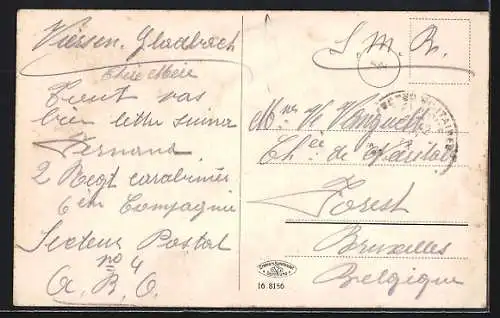 Viersen. Gladbach
Chère Mère
Tout vas
bien lettre suivra
Fernand
2 Regt carabinier
6èm Compagnie
Secteur Postal
no 4
A. B. O.
S. M. B.
Mme Ve
Chée de
Forest
Bruxelles
Belgique
16 8156